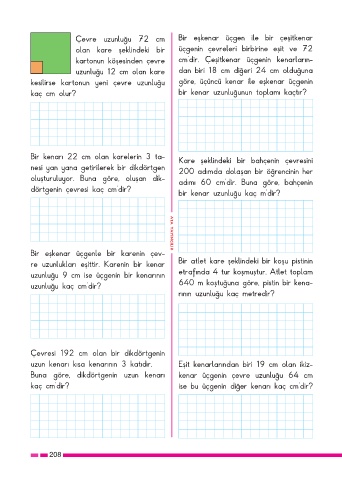 Çevre uzunluğu 72 cm
olan kare şeklindeki bir
kartonun köşesinden çevre
uzunluğu 12 cm olan kare
kesilirse kartonun yeni çevre uzunluğu
kaç cm olur?
Bir kenarı 22 cm olan karelerin 3 ta-
nesi yan yana getirilerek bir dikdörtgen
oluşturuluyor. Buna göre, oluşan dik-
dörtgenin çevresi kaç cm'dir?
Bir eşkenar üçgenle bir karenin çev-
re uzunlukları eşittir. Karenin bir kenar
uzunluğu 9 cm ise üçgenin bir kenarının
uzunluğu kaç cm'dir?
Çevresi 192 cm olan bir dikdörtgenin
uzun kenarı kısa kenarının 3 katıdır.
Buna göre, dikdörtgenin uzun kenarı
kaç cm'dir?
Bir eşkenar üçgen ile bir çeşitkenar
üçgenin çevreleri birbirine eşit ve 72
cm'dir. Çeşitkenar üçgenin kenarların-
dan biri 18 cm diğeri 24 cm olduğuna
göre, üçüncü kenar ile eşkenar üçgenin
bir kenar uzunluğunun toplamı kaçtır?
Kare şeklindeki bir bahçenin çevresini
200 adımda dolaşan bir öğrencinin her
adımı 60 cm'dir. Buna göre, bahçenin
bir kenar uzunluğu kaç m'dir?
Bir atlet kare şeklindeki bir koşu pistinin
etrafında 4 tur koşmuştur. Atlet toplam
640 m koştuğuna göre, pistin bir kena-
rının uzunluğu kaç metredir?
Eşit kenarlarından biri 19 cm olan ikiz-
kenar üçgenin çevre uzunluğu 64 cm
ise bu üçgenin diğer kenarı kaç cm'dir?
208